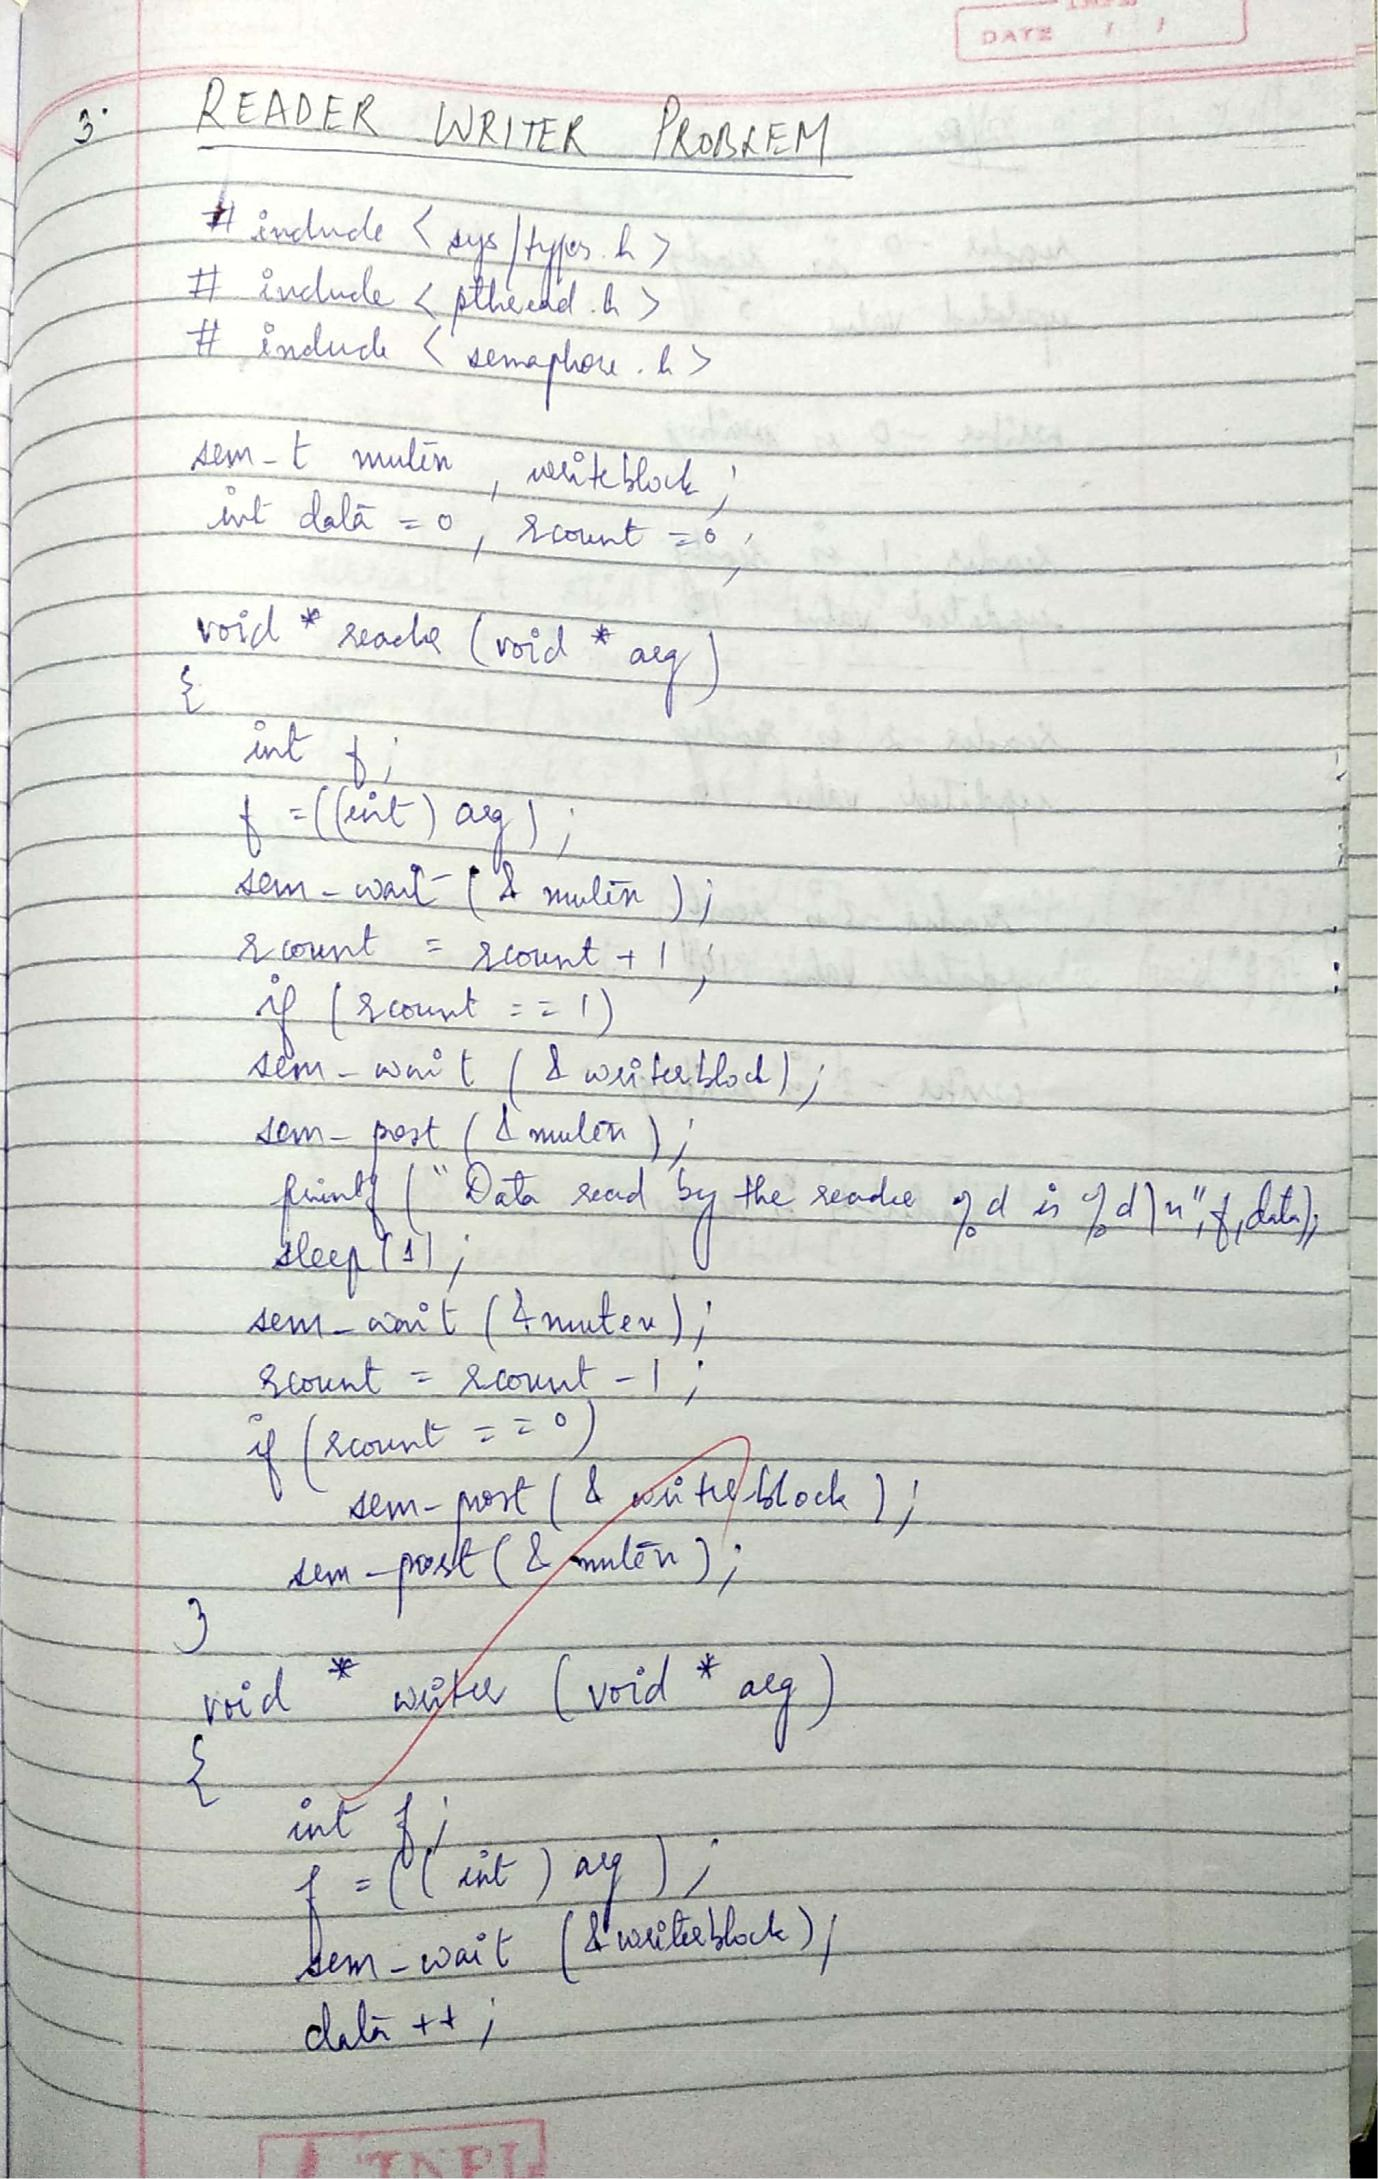 DATE / /
3. READER WRITER PROBLEM
# include < sys/types.h >
# include < pthread.h >
# include < semaphore.h >
sem_t mutex, writeblock;
int data = 0, rcount = 0;
void * reader (void * arg)
{
int f;
f = ((int) arg);
sem_wait (& mutex);
rcount = rcount + 1;
if (rcount == 1)
sem_wait (& writerblock);
sem_post (& mutex);
printf ("Data read by the reader %d is %d\n", f, data);
sleep(1);
sem_wait (& mutex);
rcount = rcount - 1;
if (rcount == 0)
sem_post (& writeblock);
sem_post (& mutex);
}
void * writer (void * arg)
{
int f;
f = ((int) arg);
sem_wait (& writerblock);
data ++;